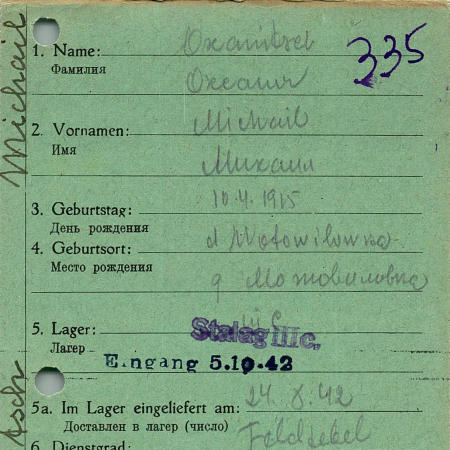 335
1. Name:
Фамилия
2. Vornamen: Michail
Имя Михаил
3. Geburtstag: 10.4.1915
День рождения
4. Geburtsort: d Motowilowka
Место рождения д Мотовиловка
5. Lager: Stalag III c.
Лагер
Eingang 5.10.42
5a. Im Lager eingeliefert am: 24.8.42
Доставлен в лагер (число) Feldwebel
6. Dienstgrad:
Michail